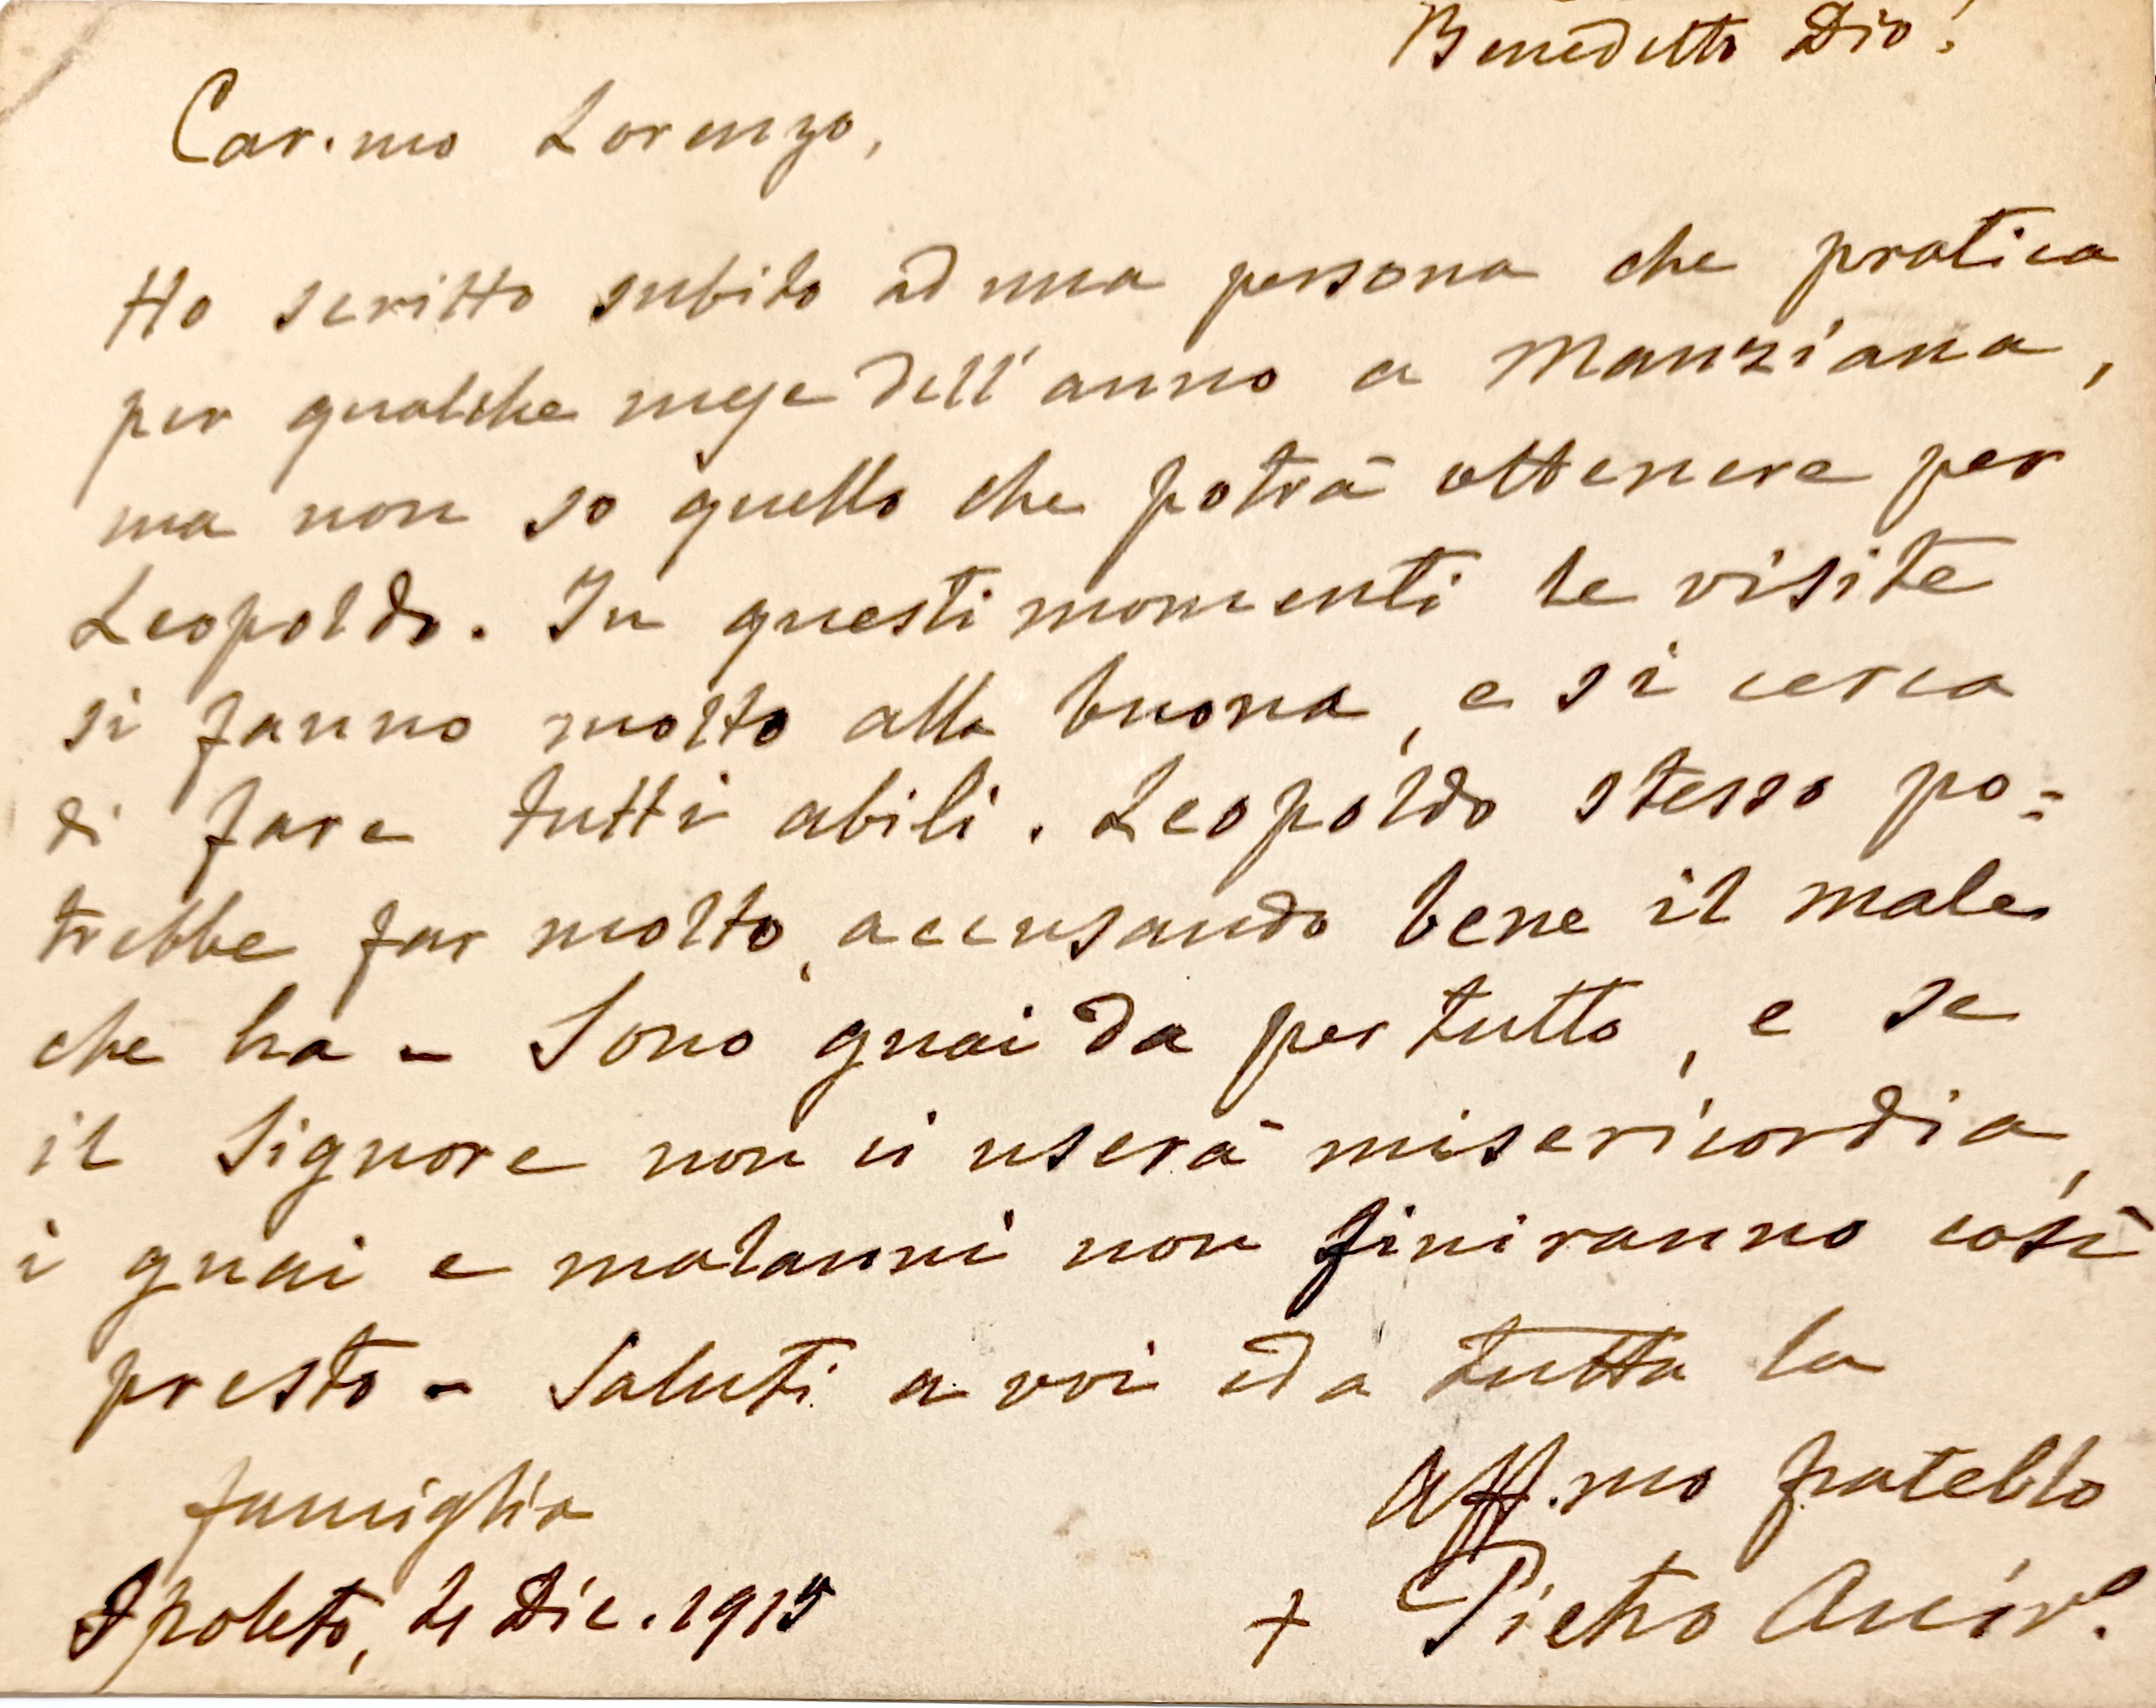 Benedetto Dio!
Car.mo Lorenzo,
Ho scritto subito ad una persona che pratica
per qualche mese dell'anno a Manziana,
ma non so quello che potrà ottenere per
Leopoldo. In questi momenti le visite
si fanno molto alla buona, e si cerca
di fare tutti abili. Leopoldo stesso po=
trebbe far molto, accusando bene il male
che ha - Sono guai da per tutto, e se
il Signore non ci userà misericordia,
i guai e malanni non finiranno così
presto - Saluti a voi ed a tutta la
famiglia
Aff.mo fratello
Spoleto, 21 Dic. 1915
+ Pietro Arciv.º